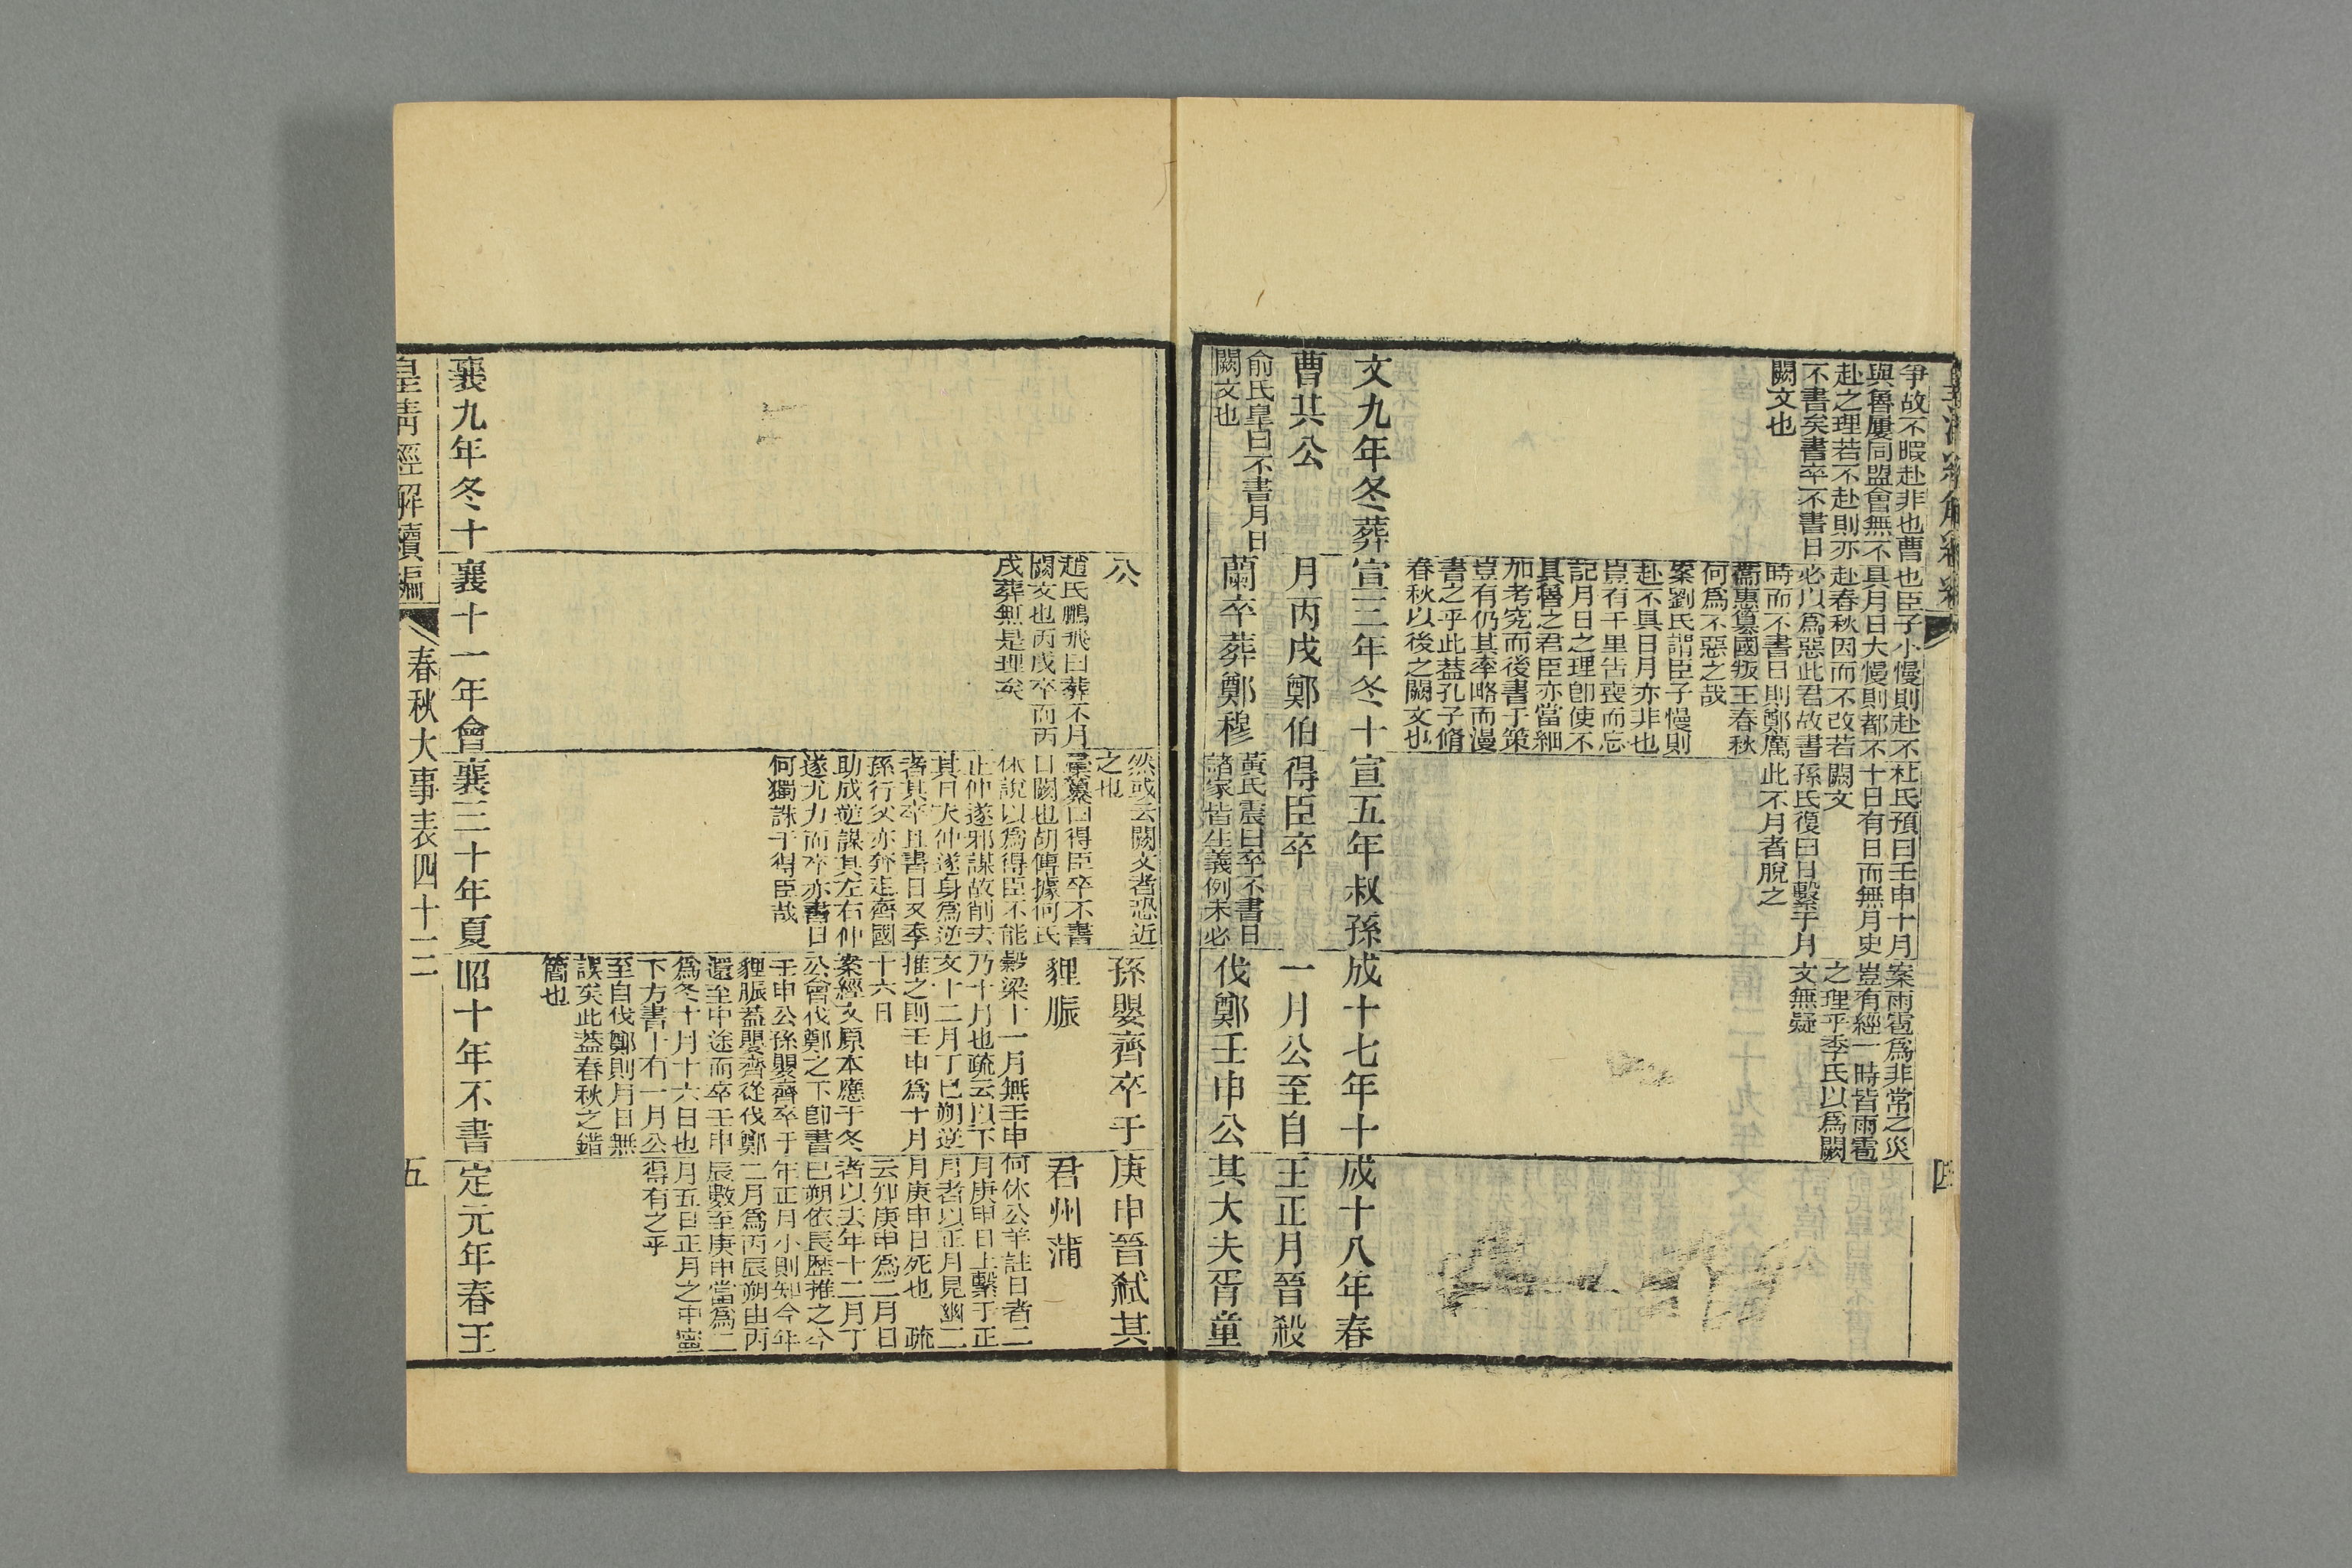 爭故不暇赴非也曹
與魯屢同盟會無不
赴之理若不赴則亦
不書矣書卒不書日
闕文也
也臣子小慢則赴不
具月日大慢則都不
赴春秋因而不改若
必以爲惡此君故書
時而不書日則鄭厲
衞惠簒國叛王春秋
何爲不惡之哉
案劉氏謂臣子慢則
赴不具日月亦非也
豈有千里告喪而忘
記月日之理卽使不
具魯之君臣亦當細
加考究而後書于策
豈有仍其率略而漫
書之乎此葢孔子脩
春秋以後之闕文也
杜氏預曰壬申十月
十日有日而無月史
闕文
孫氏復曰日繫于月
此不月者脫之
案雨雹爲非常之災
豈有經一時皆雨雹
之理乎季氏以爲闕
文無疑
四
文九年冬葬
曹共公
俞氏皐曰不書月日
闕文也
宣三年冬十
月丙戌鄭伯
蘭卒葬鄭穆
宣五年叔孫
得臣卒
黃氏震曰卒不書日
諸家皆生義例未必
成十七年十
一月公至自
伐鄭壬申公
成十八年春
王正月晉殺
其大夫胥童
公
趙氏鵬飛曰葬不月
闕文也丙戌卒而丙
戌葬無是理矣
然或云闕文者恐近
之也
彙纂曰得臣卒不書
日闕也胡傳據何氏
休說以爲得臣不能
止仲遂邪謀故削去
其日夫仲遂身爲逆
者其卒且書日又季
孫行父亦奔走齊國
助成逆謀其左右仲
遂尤力而卒亦書日
何獨誅于得臣哉
孫嬰齊卒于
貍脤
穀梁十一月無壬申
乃十月也疏云以下
文十二月丁巳朔逆
推之則壬申爲十月
十六日
案經文原本應于冬
公會伐鄭之下卽書
壬申公孫嬰齊卒于
貍脤葢嬰齊從伐鄭
還至中途而卒壬申
爲冬十月十六日也
下方書十有一月公
至自伐鄭則月日無
誤矣此葢春秋之錯
簡也
庚申晉弒其
君州蒲
何休公羊註日者二
月庚申日上繫于正
月者以正月見幽二
月庚申日死也　疏
云知庚申爲二月日
者以去年十二月丁
巳朔依長歷推之今
年正月小則知今年
二月爲丙辰朔由丙
辰數至庚申當爲二
月五日正月之中寧
得有之乎
襄九年冬十
襄十一年會
襄三十年夏
昭十年不書
定元年春王
皇淸經解續編
春秋大事表四十二
五